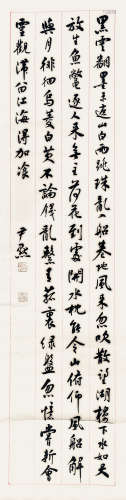 黑雲翻墨未遮山白雨跳珠亂入船卷地風來忽吹散望湖樓下水如天
放生魚鱉逐人來無主荷花到處開水枕能令山俯仰風船解
與月徘徊烏菱白芡不論錢亂繫青菰裹綠盤忽憶嘗新會
靈觀滯留江海得加餐 尹默